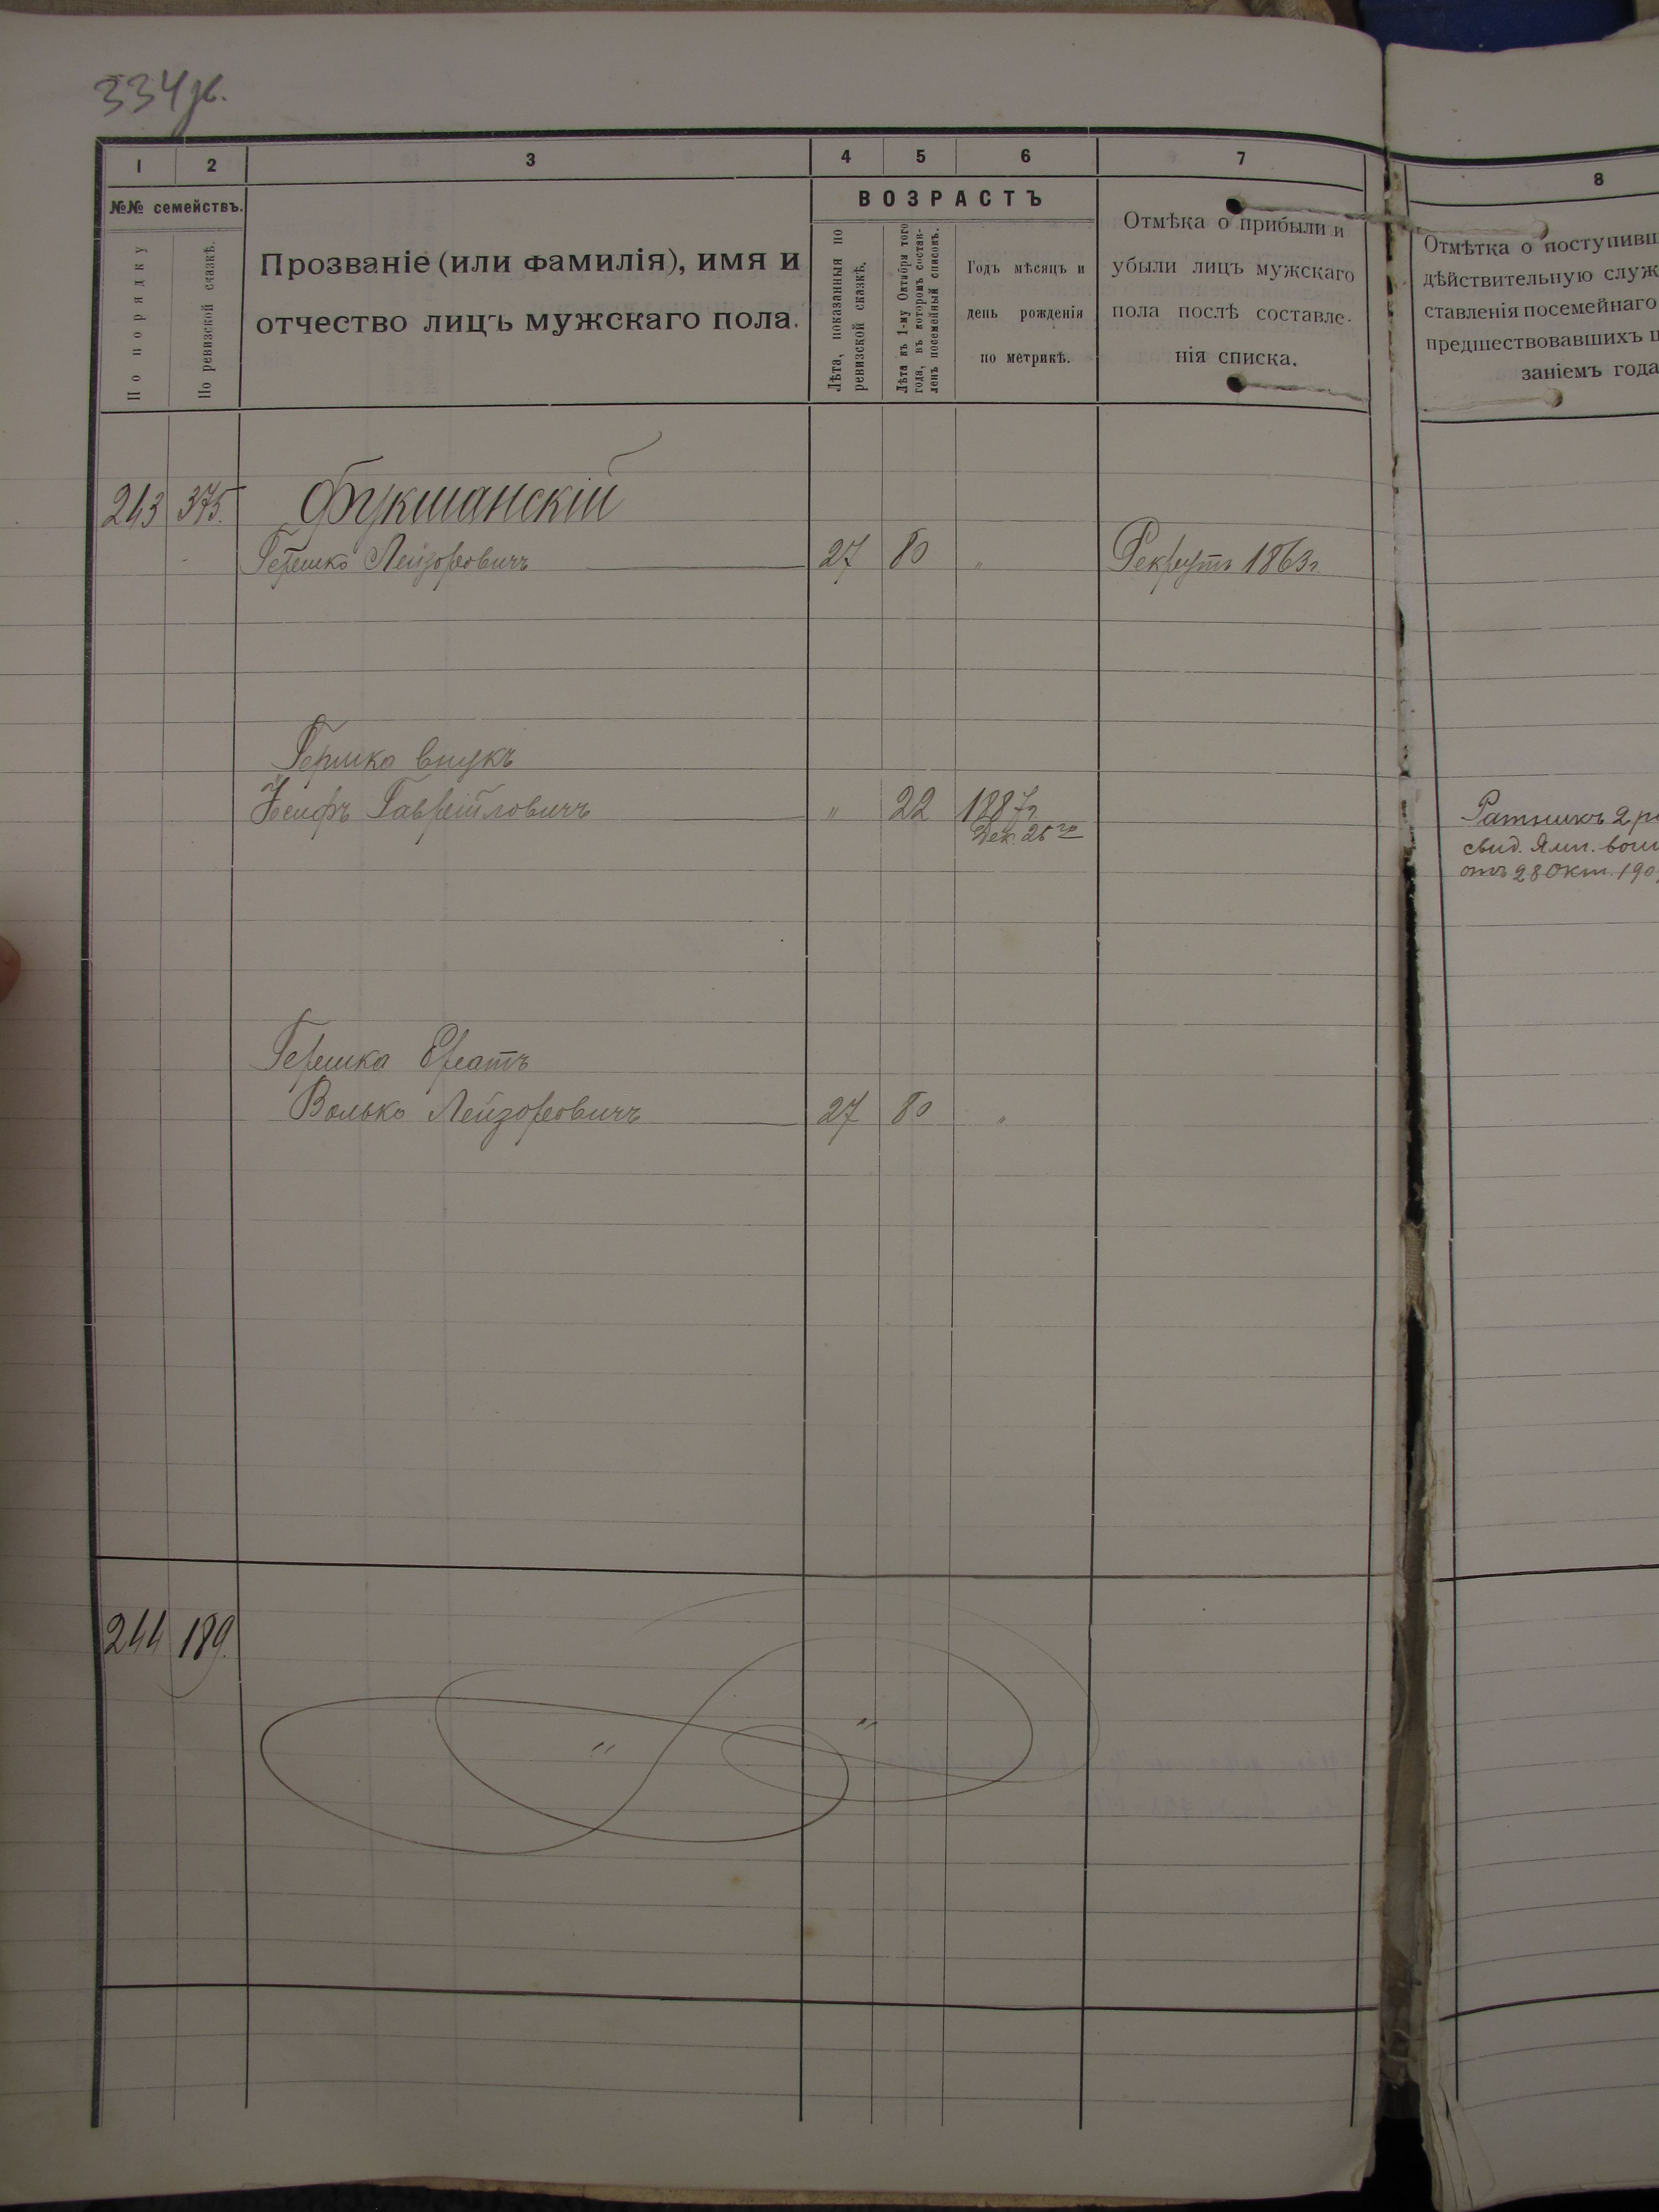 334 об.
1 2 3 4 5 6 7 8
№№ семействъ.
По порядку
По ревизской сказкѣ.
Прозваніе (или фамилія), имя и
отчество лицъ мужскаго пола.
ВОЗРАСТЪ
Лѣта, показанныя по
ревизской сказкѣ.
Лѣта къ 1-му Октября того
года, въ которомъ состав-
ленъ посемейный списокъ.
Годъ мѣсяцъ и
день рожденія
по метрикѣ.
Отмѣка о прибыли и
убыли лицъ мужскаго
пола послѣ составле-
нія списка.
Отмѣтка о поступивш
дѣйствительную служ
ставленія посемейнаго
предшествовавшихъ п
заніемъ года
243 375. Фукшанскій
Гершко Лейзоровичъ 27 80 " Рекрутъ 1863г.
Гершко внукъ
Гаврейловичъ " 22 1887г.
Дек. 25го
Ратникъ 2 ра
свид. Ямп. воин
отъ 28 Окт. 190
Гершка братъ
Волько Лейзоровичъ 27 80 "
244 189.
" "